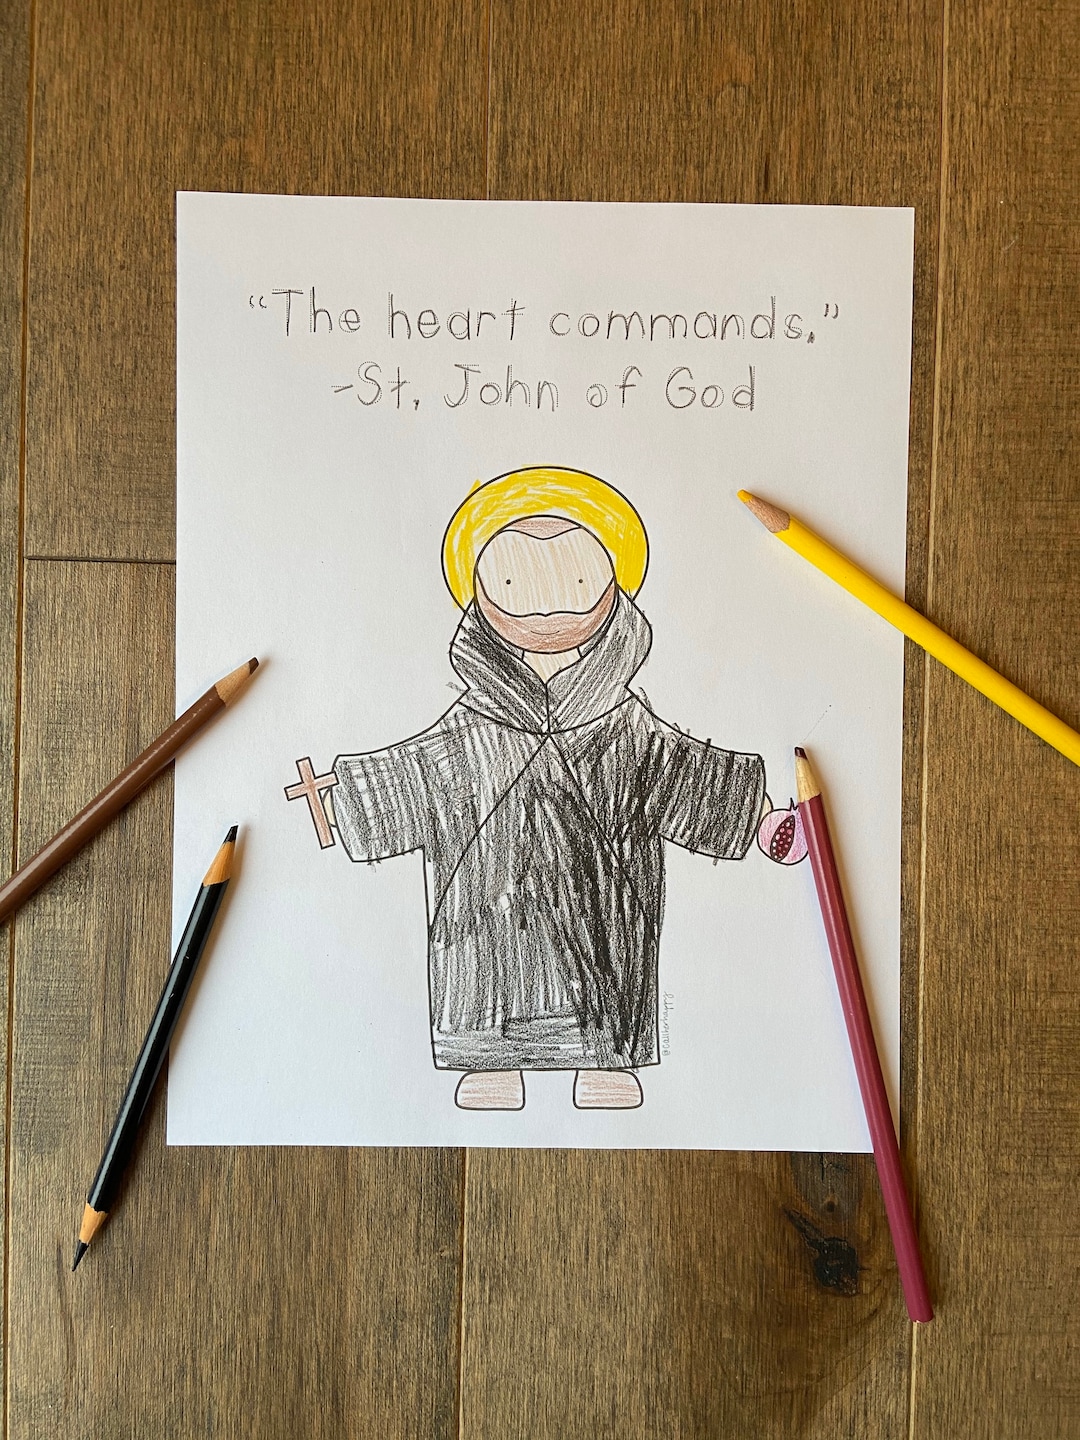 “The heart commands.”
-St. John of God
@callherhappy